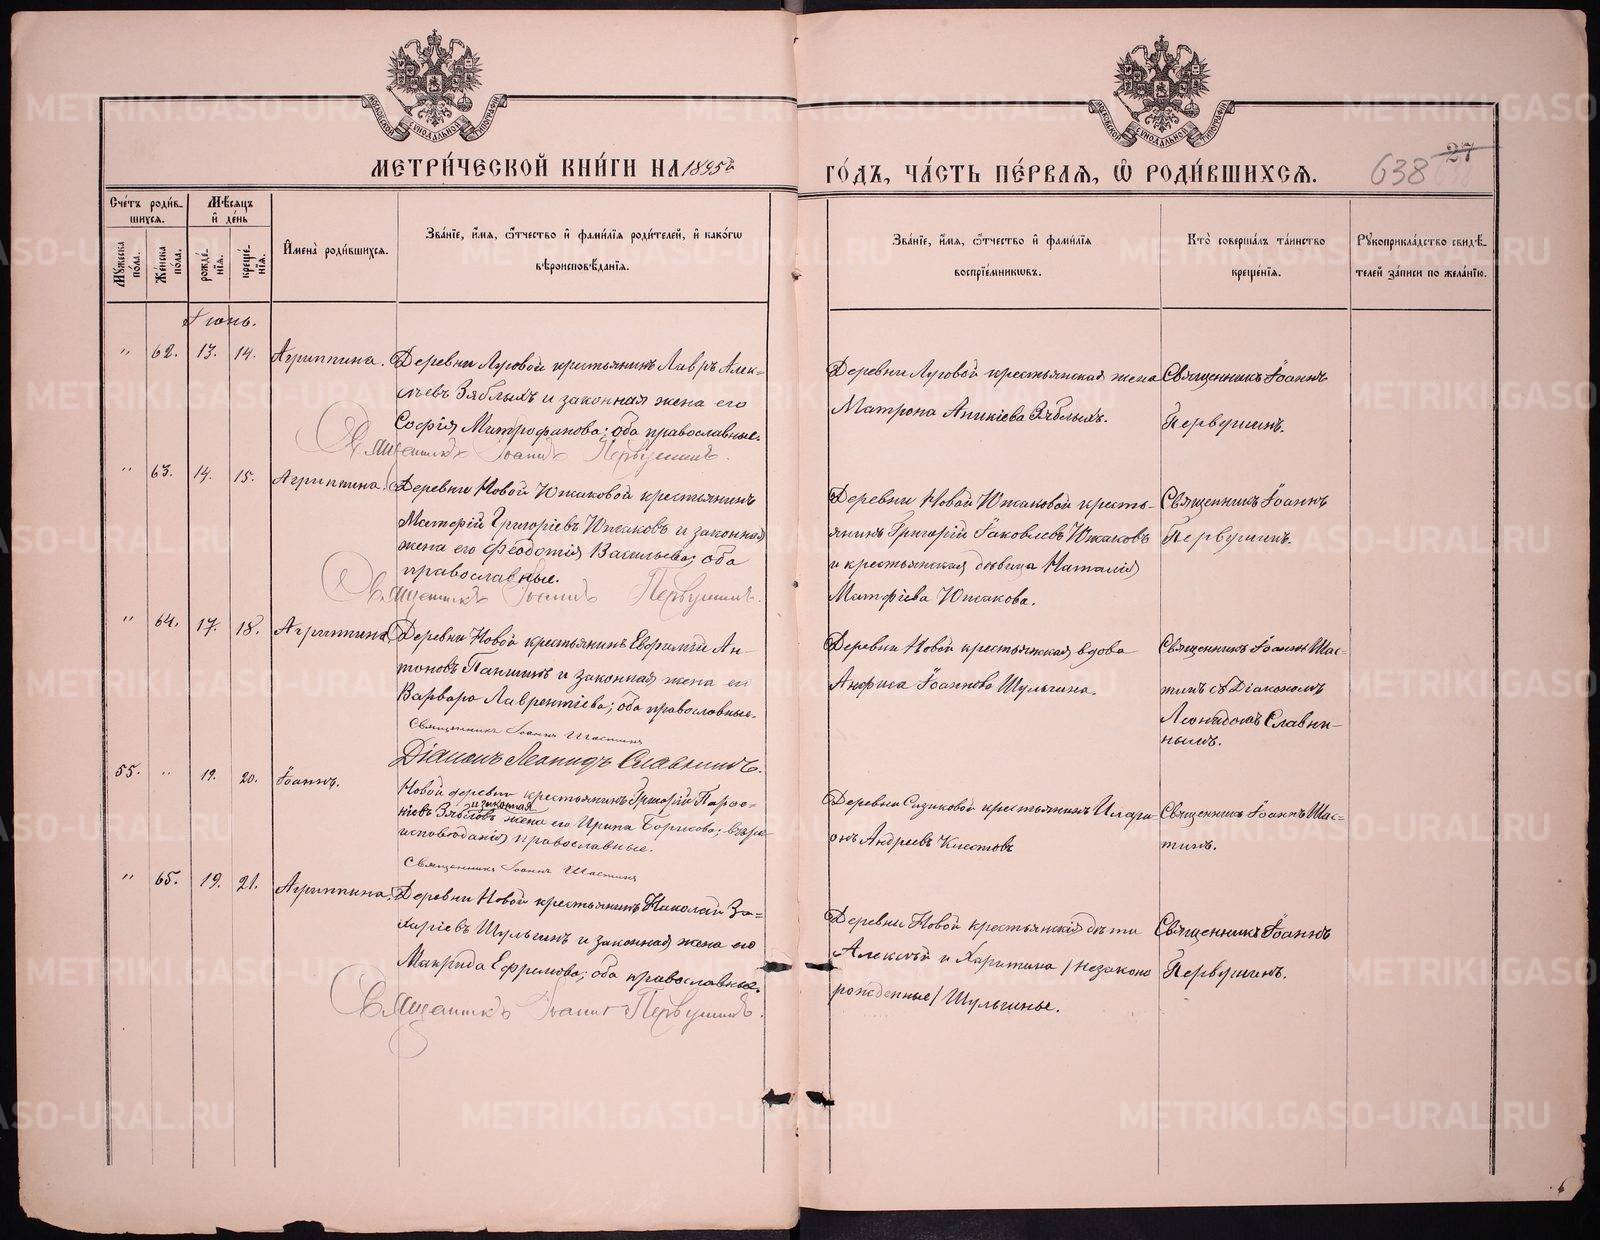 МЕТРИ́ЧЕСКОЙ КНИ́ГИ НА 1895й
ГО́ДЪ, ЧА́СТЬ ПЕ́РВАЯ, Ѽ РОДИ́ВШИХСЯ.
638 27
Сче́тъ роди́в-
шихся.
Мѣ́сяцъ
и҆ де́нь
Му́жеска
по́ла.
Же́нска
по́ла.
рожде́-
нїя.
креще́-
нїя.
И҆мена̀ роди́вшихся.
Зва́нїе, и҆́мя, ѻ҆́тчество и҆ фами́лїя роди́телей, и҆ како́гѡ
вѣроисповѣ́данїя.
Зва́нїе, и҆́мя, ѻ҆́тчество и҆ фами́лїя
воспрїе́мникѡвъ.
Кто̀ соверша́лъ та́инство
креще́нїя.
Рꙋкоприкла́дство свидѣ́-
телей за́писи по жела́нїю.
Іюнь.
" 62. 13. 14. Агриппина.
Деревни Луговой крестьянинъ Лавръ Алек-
сѣевъ Зяблыхъ и законная жена его
Софія Митрофанова; оба православные.
Священникъ Іоаннъ Первушинъ.
Деревни Луговой крестьянская жена
Матрона Аникіева Зяблыхъ.
Священникъ Іоаннъ
Первушинъ.
" 63. 14. 15. Агриппина.
Деревни Новой Южаковой крестьянинъ
Матфій Григоріевъ Южаковъ и законная
жена его Феодотія Васильева; оба
православные.
Священникъ Іоаннъ Первушинъ.
Деревни Новой Южаковой кресть-
янинъ Григорій Іаковлевъ Южаковъ
и крестьянская дѣвица Наталія
Матфіева Южакова.
Священникъ Іоаннъ
Первушинъ.
" 64. 17. 18. Агриппина.
Деревни Новой крестьянинъ Евфимій Ан-
тоновъ Паншинъ и законная жена его
Варвара Лаврентіева; оба православные.
Священникъ Іоаннъ Шастинъ
Діаконъ Леонидъ Славнинъ.
Деревни Новой крестьянская вдова
Анфиса Іоаннова Шульгина.
Священникъ Іоаннъ Шас-
тинъ съ Діакономъ
Леонидомъ Славни-
нымъ.
55. " 19. 20. Іоаннъ.
Новой деревни крестьянинъ Григорій Парѳе-
ніевъ Зябловъ и законная жена его Ирина Борисова; вѣро-
исповѣданія православные.
Священникъ Іоаннъ Шастинъ
Деревни Сизиковой крестьянинъ Илари-
онъ Андреевъ Кистовъ
Священникъ Іоаннъ Шас-
тинъ.
" 65. 19. 21. Агриппина.
Деревни Новой крестьянинъ Николай За-
харіевъ Шульгинъ и законная жена его
Макрида Ефремова; оба православные.
Священникъ Іоаннъ Первушинъ.
Деревни Новой крестьянскія дѣти
Алексѣй и Харитина /незаконо
рожденные/ Шульгины.
Священникъ Іоаннъ
Первушинъ.
METRIKI.GASO-URAL.RU